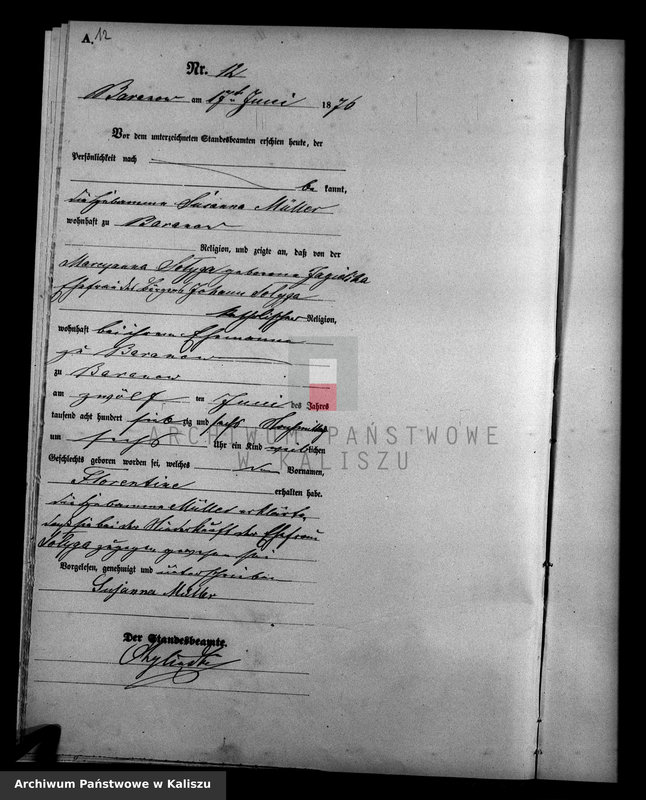 A. 12
Nr. 12
Baranow am 17ten Juni 1876
Vor dem unterzeichneten Standesbeamten erschien heute, der
Persönlichkeit nach
be kannt,
die Hebamme Susanna Müller
wohnhaft zu Baranow
Religion, und zeigte an, daß von der
Maryanna Solyga geborene
Ehefrau des Bürgers Johann Solyga
katholischer Religion,
wohnhaft bei ihrem Ehemanne
zu Baranow
zu Baranow
am zwölf ten Juni des Jahres
tausend acht hundert sieb zig und sechs Vormittag
um sechs Uhr ein Kind weiblichen
Geschlechts geboren worden sei, welches den Vornamen,
Florentine erhalten habe.
Die Hebamme Müller erklärte,
daß sie bei der Niederkunft der Ehefrau
Solyga zugegen gewesen sei
Vorgelesen, genehmigt und unterschrieben
Susanna Müller
Der Standesbeamte.
ARCHIWUM PAŃSTWOWE
W KALISZU
Archiwum Państwowe w Kaliszu